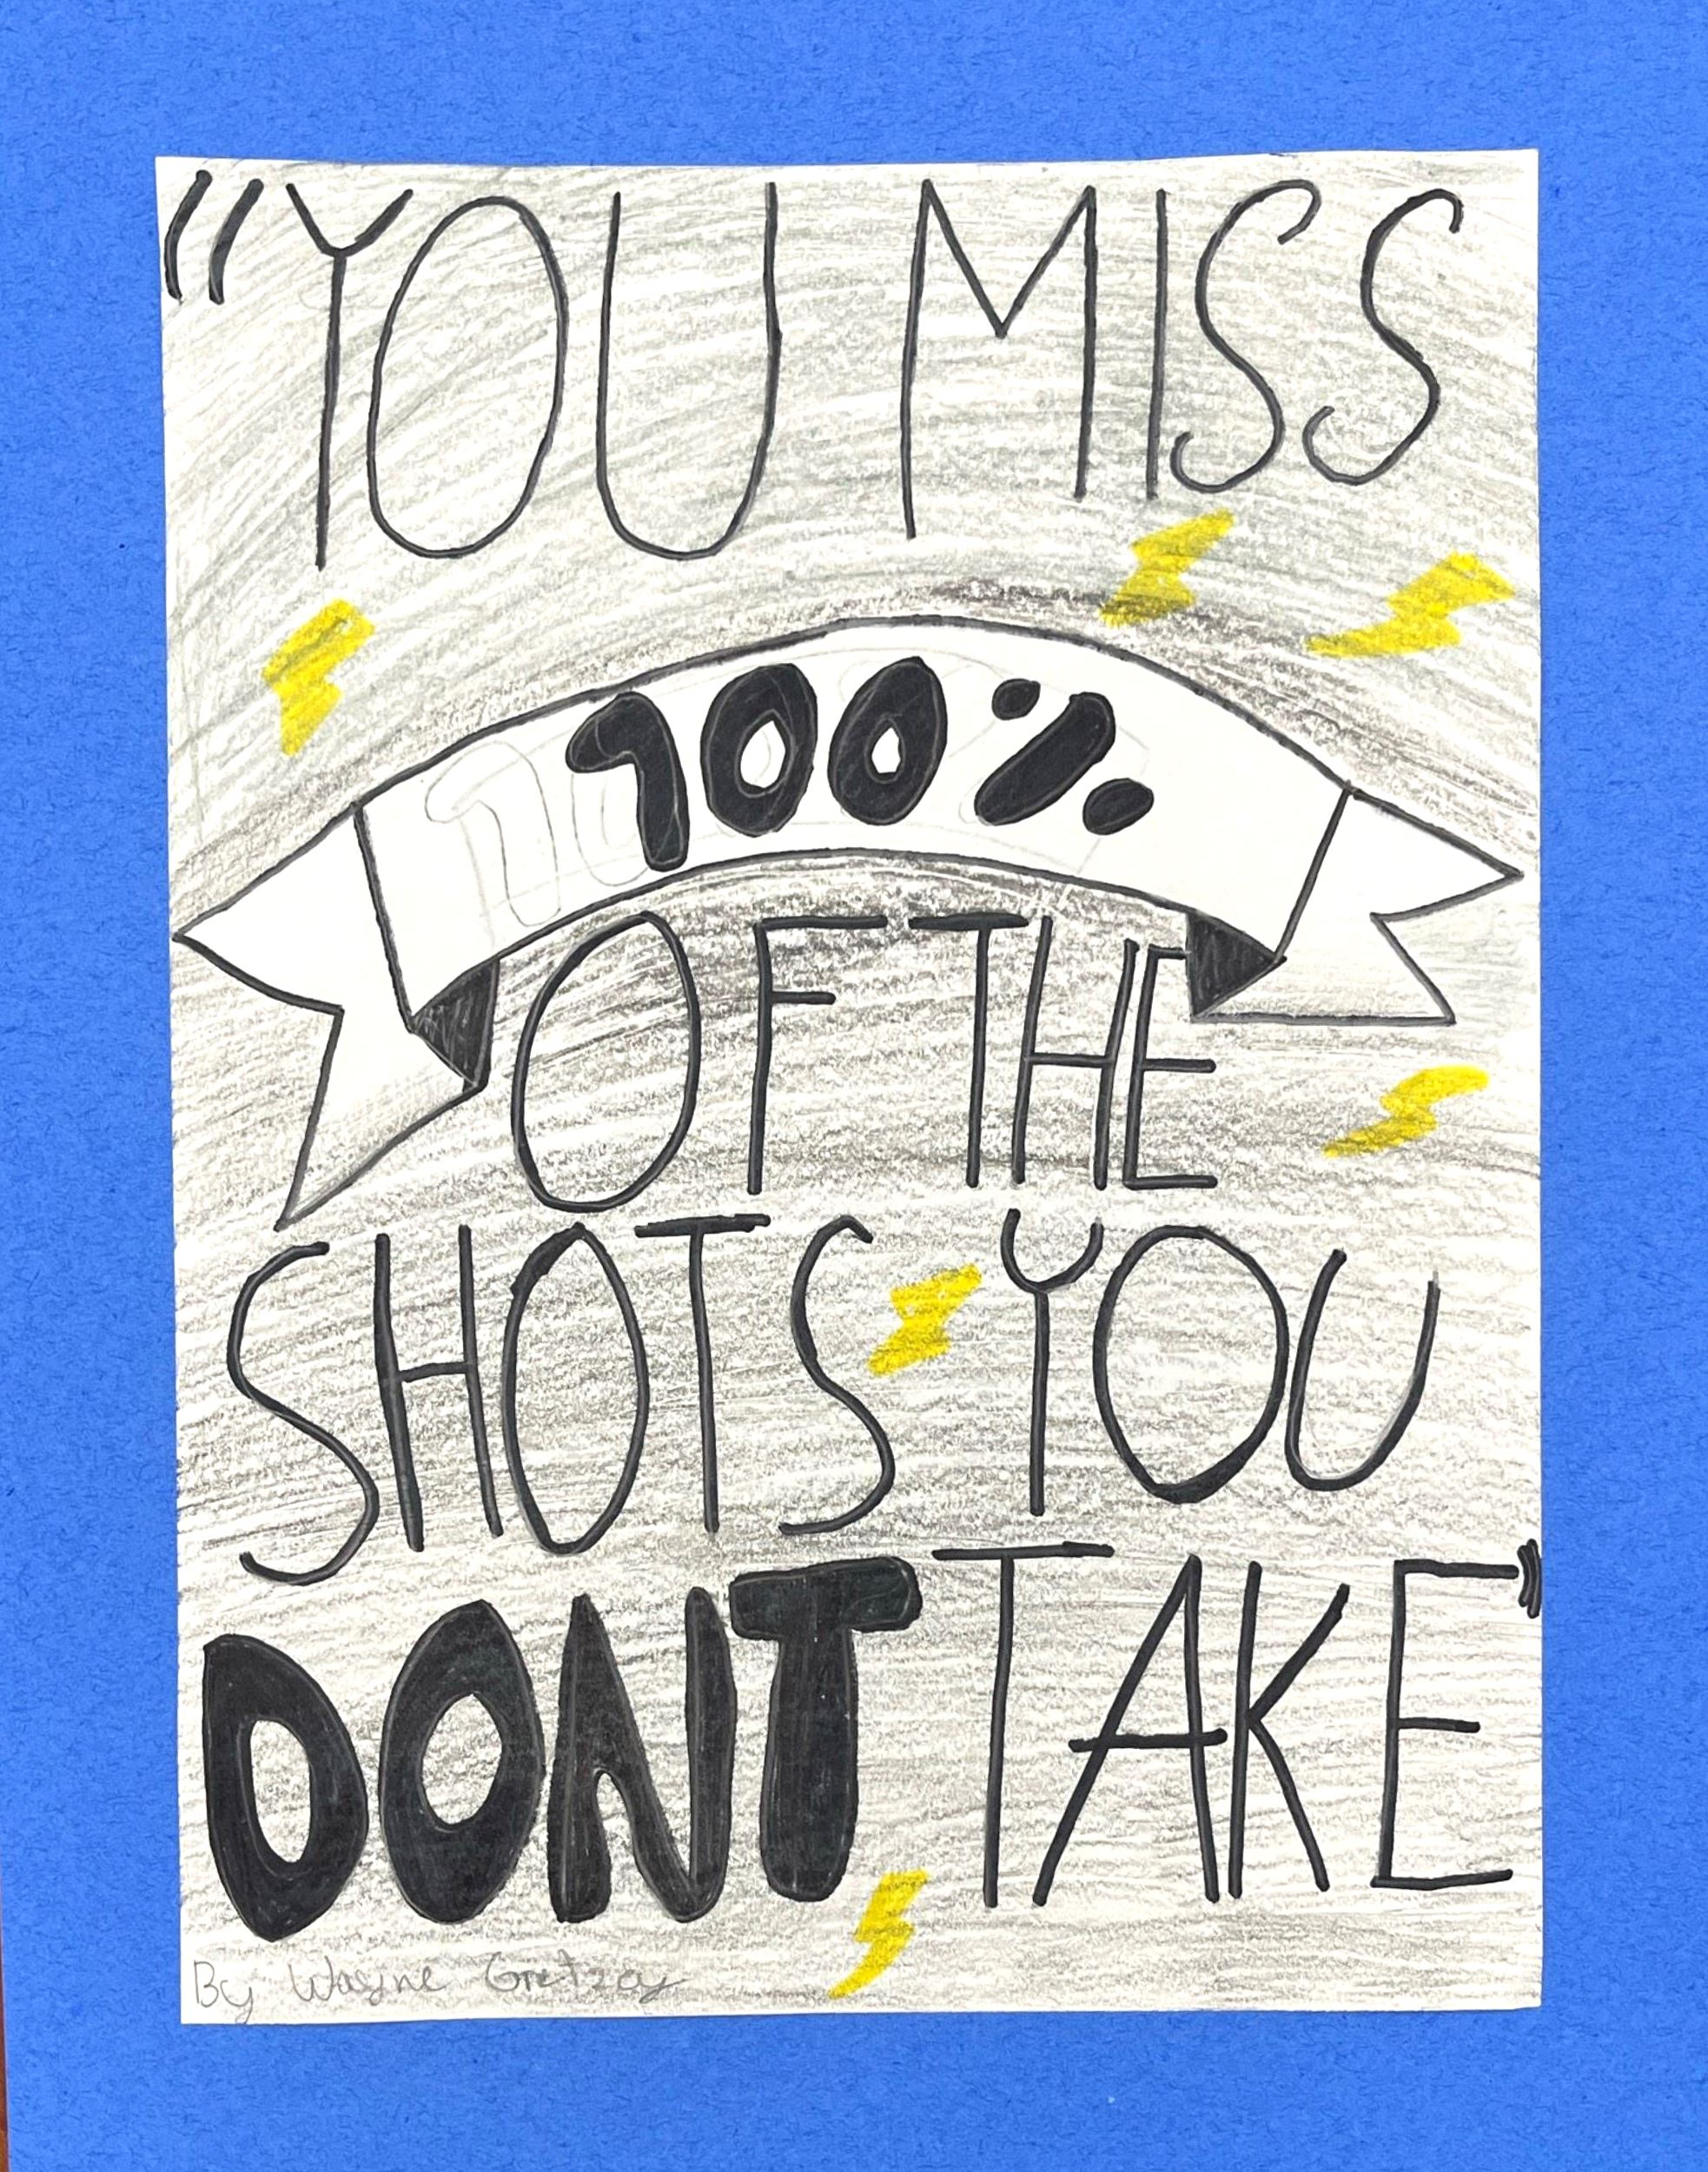 "YOU MISS
100%
OF THE
SHOTS YOU
DONT TAKE"
By Wayne Gretzay